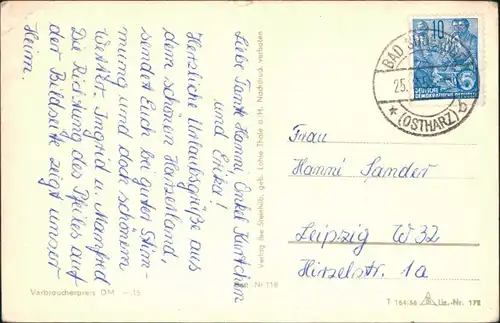 Liebe Tante Hanni, Onkel Kurtchen
und Erika!
Herzliche Urlaubsgrüße aus
dem schönen Harzerland,
sendet Euch bei guter Stim-
mung und doch schönem
Wetter. Ingrid u. Manfred
Die Richtung des Pfeiles auf
der Bildseite zeigt unser
Heim.
Verbraucherpreis DM —.15
Nr 118
Verlag Ilse Steenhüb, geb. Lohse Thale a./H. Nachdruck verboten
10
DEUTSCHE
DEMOKRATISCHE
BAD
25.
(OSTHARZ) b
Frau
Hanni Sander
Leipzig W 32
Hirzelstr. 1a
T 164/56 Liz.-Nr. 175